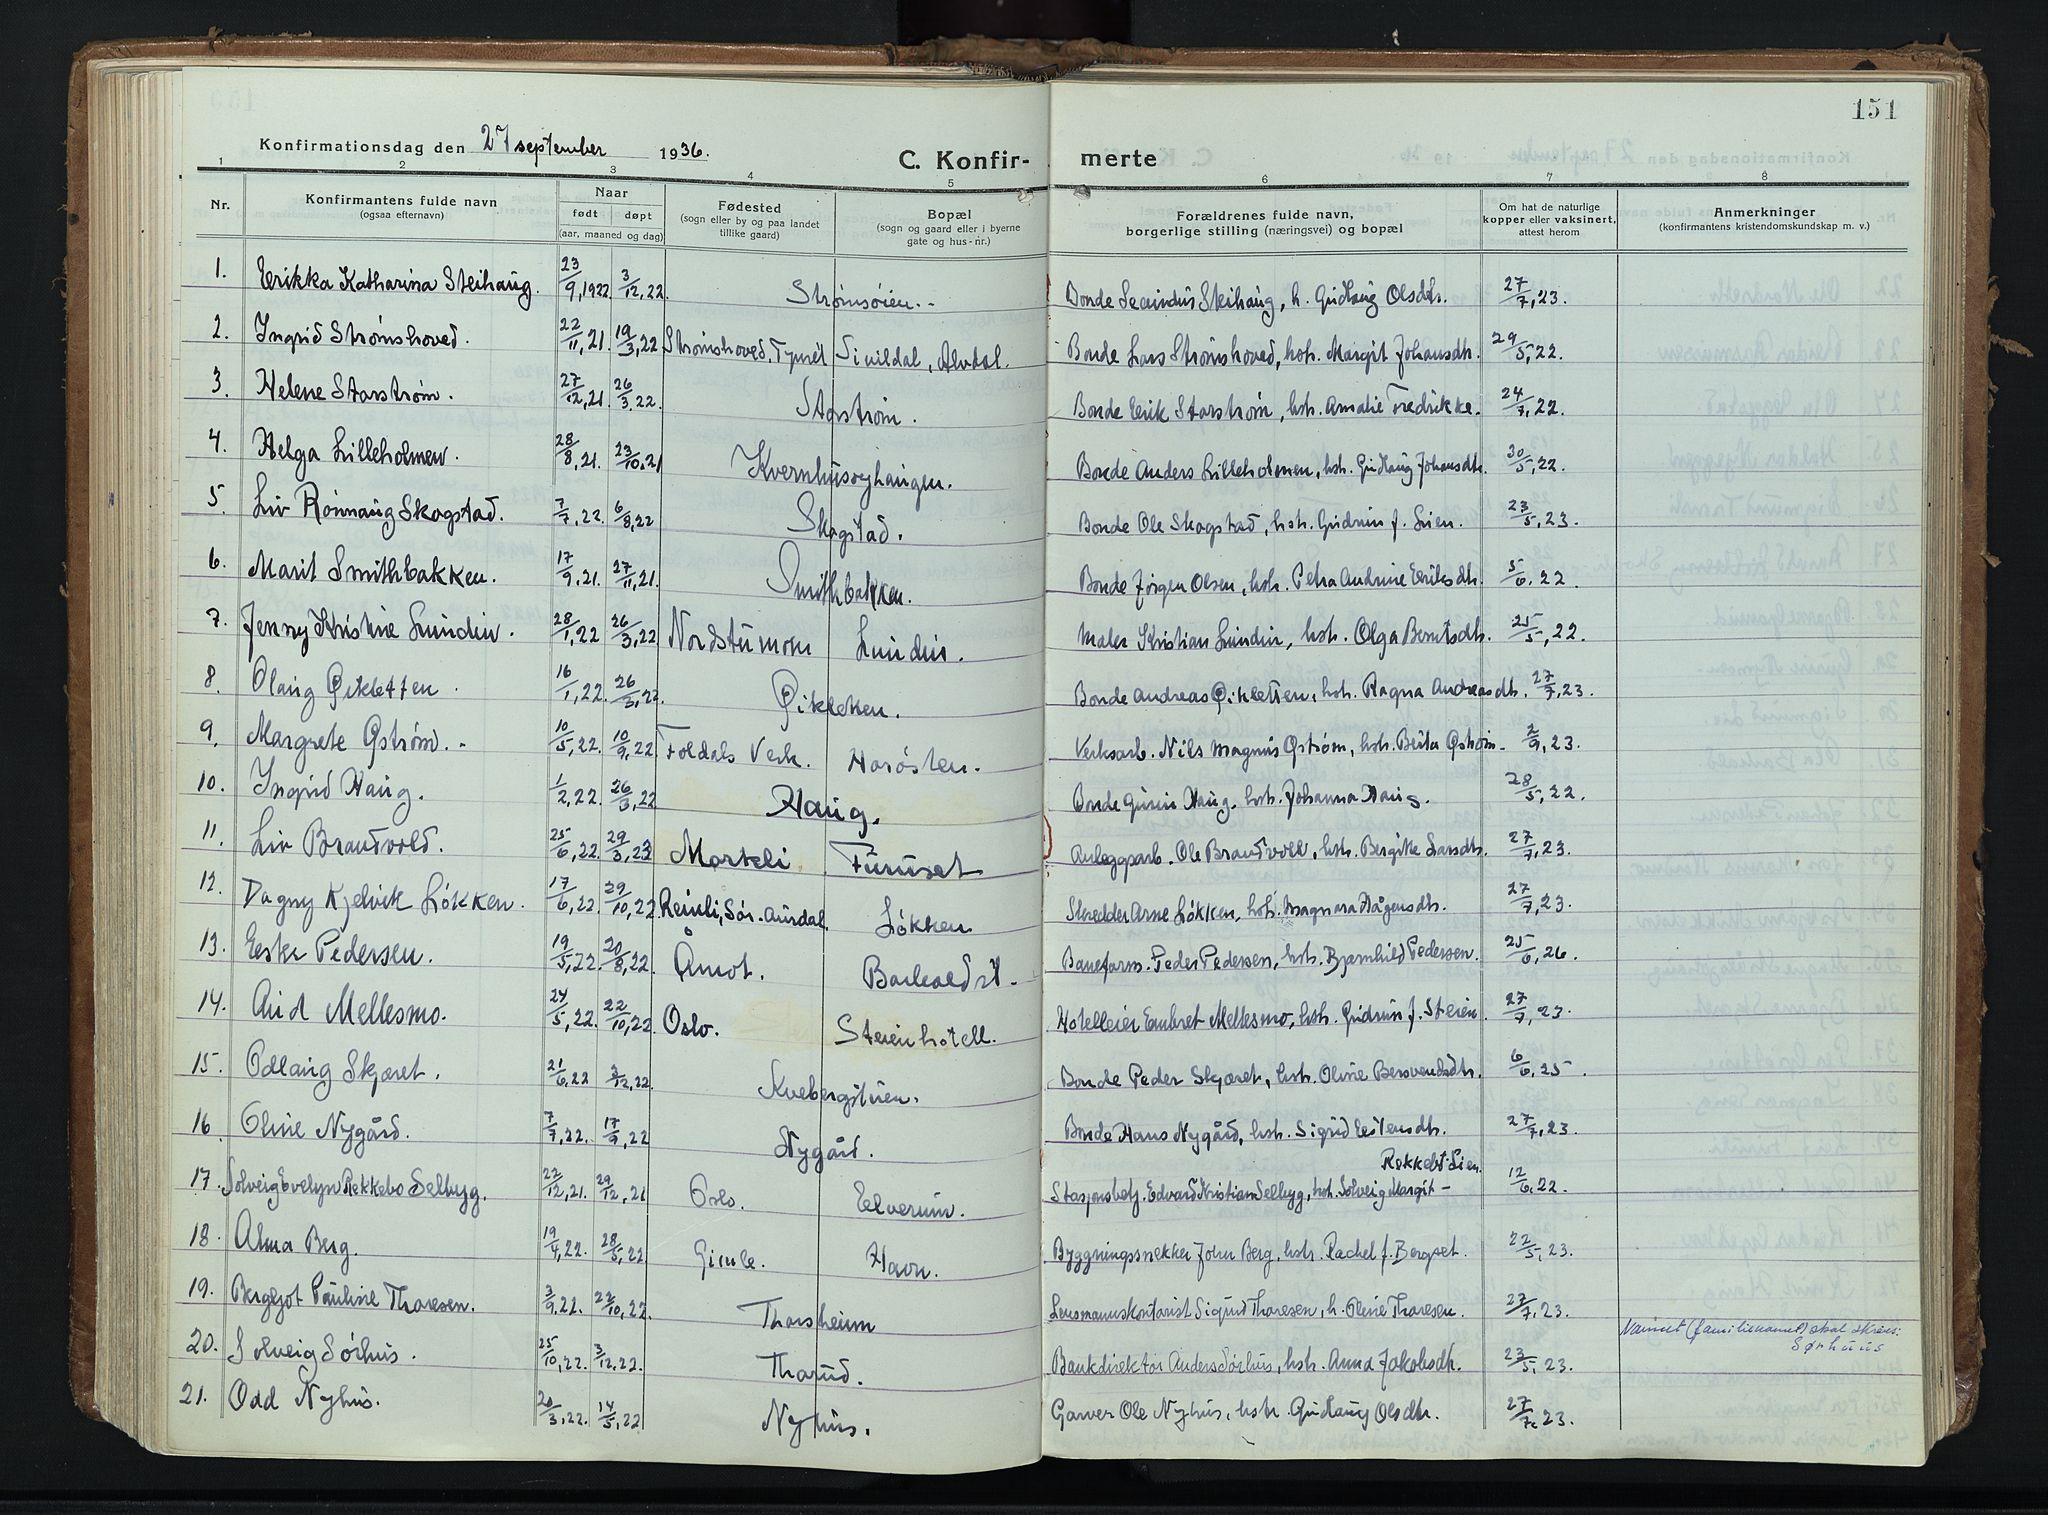 151
Konfirmationsdag den 27 september 1936.
C. Konfir- merte
1 2 3 4 5 6 7 8
Nr. Konfirmantens fulde navn (ogsaa efternavn) Naar født døpt (aar, maaned og dag) Fødested (sogn eller by og paa landet tillike gaard) Bopæl (sogn og gaard eller i byerne gate og hus-nr.) Forældrenes fulde navn, borgerlige stilling (næringsvei) og bopæl Om hat de naturlige kopper eller vaksinert, attest herom Anmerkninger (konfirmantens kristendomskundskap m. v.)
1. Erikka Katharina Steihaug. 23/9, 1922 3/12, 22 Strømsøien.. Bonde Steihaug, h. Gudlaug Olsdtr. 27/7, 23.
2. Ingrid Strømshoved. 22/11, 21. 19/3, 22 Strømshoved, Tynset Sivildal, Alvdal. Bonde Lars Strømshoved, hstr. Margit Johansdtr. 29/5, 22.
3. Helene Storstrøm. 27/12, 21. 26/3, 22. Storstrøm. Bonde Erik Storstrøm, hstr. Amalie Fredrikke. 24/7, 22.
4. Helga Lilleholmen. 28/8, 21. 23/10, 21 Kvernhusøyhaugen. Bonde Anders Lilleholmen, hstr. Gudlaug Johansdtr. 30/5, 22.
5. Liv Rønnaug Skogstad. 7/7, 22. 6/8, 22 Skogstad. Bonde Ole Skogstad, hstr. Gudrun f. Lien. 23/5, 23.
6. Marit Smithbakken. 17/9, 21. 27/11, 21. Smithbakken. Bonde Jørgen Olsen, hstr. Petra Andrine Eriksdtr. 5/6, 22.
7. Jenny Kristine Lundin. 28/1, 22 26/3, 22 Nordstumoen Lundin. Maler Kristian Lundin, hstr. Olga Berntsdtr. 25/5, 22.
8. Olaug Øikletten. 16/1, 22. 26/3, 22. Øikletten. Bonde Andreas Øikletten, hstr. Ragna Andreasdtr. 27/7, 23.
9. Margrete Østrøm.. 10/5, 22. 10/9, 22 Foldals Verk. Horøsten. Verksarb. Nils Magnus Østrøm, hstr. Berta Østrøm. 2/9, 23.
10. Ingrid Haug. 1/2, 22. 26/3, 22 Haug. Bonde Haug, hstr. Johanna Haug. 28/5, 22.
11. Liv Brandvold. 25/6, 22. 29/3, 23 Morteli Furuset Anleggsarb. Ole Brandvoll, hstr. Bergitte Larsdtr. 27/7, 23.
12. Dagny Kjelvik Løkken. 17/6, 22. 29/10, 22 Reinli, Sør-Aurdal. Løkken Skredder Arne Løkken, hstr. Magnara Hågensdtr. 27/7, 23.
13. Ester Pedersen. 19/5, 22. 20/8, 22 Åmot. Barkald st. Baneform. Peder Pedersen, hstr. Bjarnhild Pedersen. 25/6, 26.
14. Aud Mellesmo. 24/5, 22. 22/10, 22 Oslo. Steien hotell. Hotelleier Embret Mellesmo, hstr. Gudrun f. Steien 27/7, 23.
15. Odlaug Skjæret. 21/6, 22 3/12, 22 Kvebergstuen. Bonde Peder Skjæret, hstr. Oline Bersvendsdtr. 6/6, 25.
16. Oline Nygård. 7/7, 22. 17/9, 22 Nygård. Bonde Hans Nygård, hstr. Sigrid Estensdtr. 27/7, 23.
Rekkebo Lien.
17. Solveig Evelyn Rekkebo Selbyg. 22/12, 21. 29/12, 21 Oslo. Elverum. Stasjonsbetj. Edvard Kristian Selbyg, hstr. Solveig Margit - 12/6, 22.
18. Alma Berg. 19/4, 22. 28/5, 22 Gimle. Havn. Byggningssnekker John Berg, hstr. Rachel f. Bergset. 22/5, 23.
19. Bergljot Pauline Thoresen. 3/9, 22. 22/10, 22. Thorsheim Lensmannskontorist Sigurd Thoresen, h. Oline Thoresen. 27/7, 23.
20. Solveig Sørhus. 25/10, 22. 3/12, 22. Thorud. Bankdirektør Anders Sørhus, hstr. Anna Jakobsdtr. 23/5, 23. Navnet (familienavnet) skal skrives: Sørhuus
21. Odd Nyhus. 20/3, 22. 14/5, 22 Nyhus. Garver Ole Nyhus, hstr. Gudlaug Olsdtr. 27/7, 23.